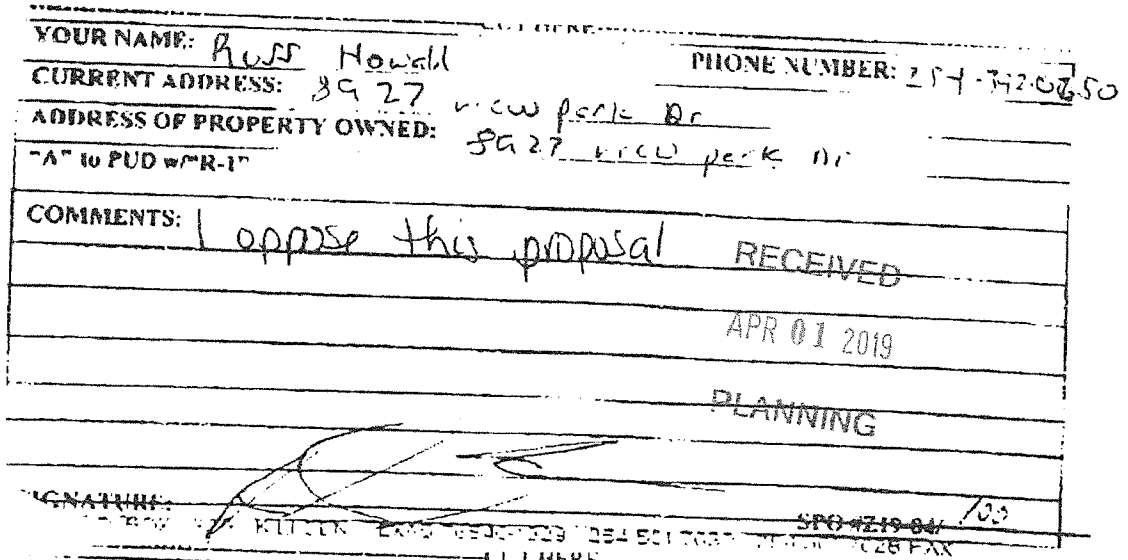 HERE
YOUR NAME: Russ Howald PHONE NUMBER: 254-342.0250
CURRENT ADDRESS: 3927 view park Dr
ADDRESS OF PROPERTY OWNED: 3927 view park Dr
"A" to PUD w/"R-1"
COMMENTS: I oppose this proposal
RECEIVED
APR 01 2019
PLANNING
SIGNATURE: SPO #Z19-04/ 100
BOX KILLEEN 254 501 FAX
CUT HERE